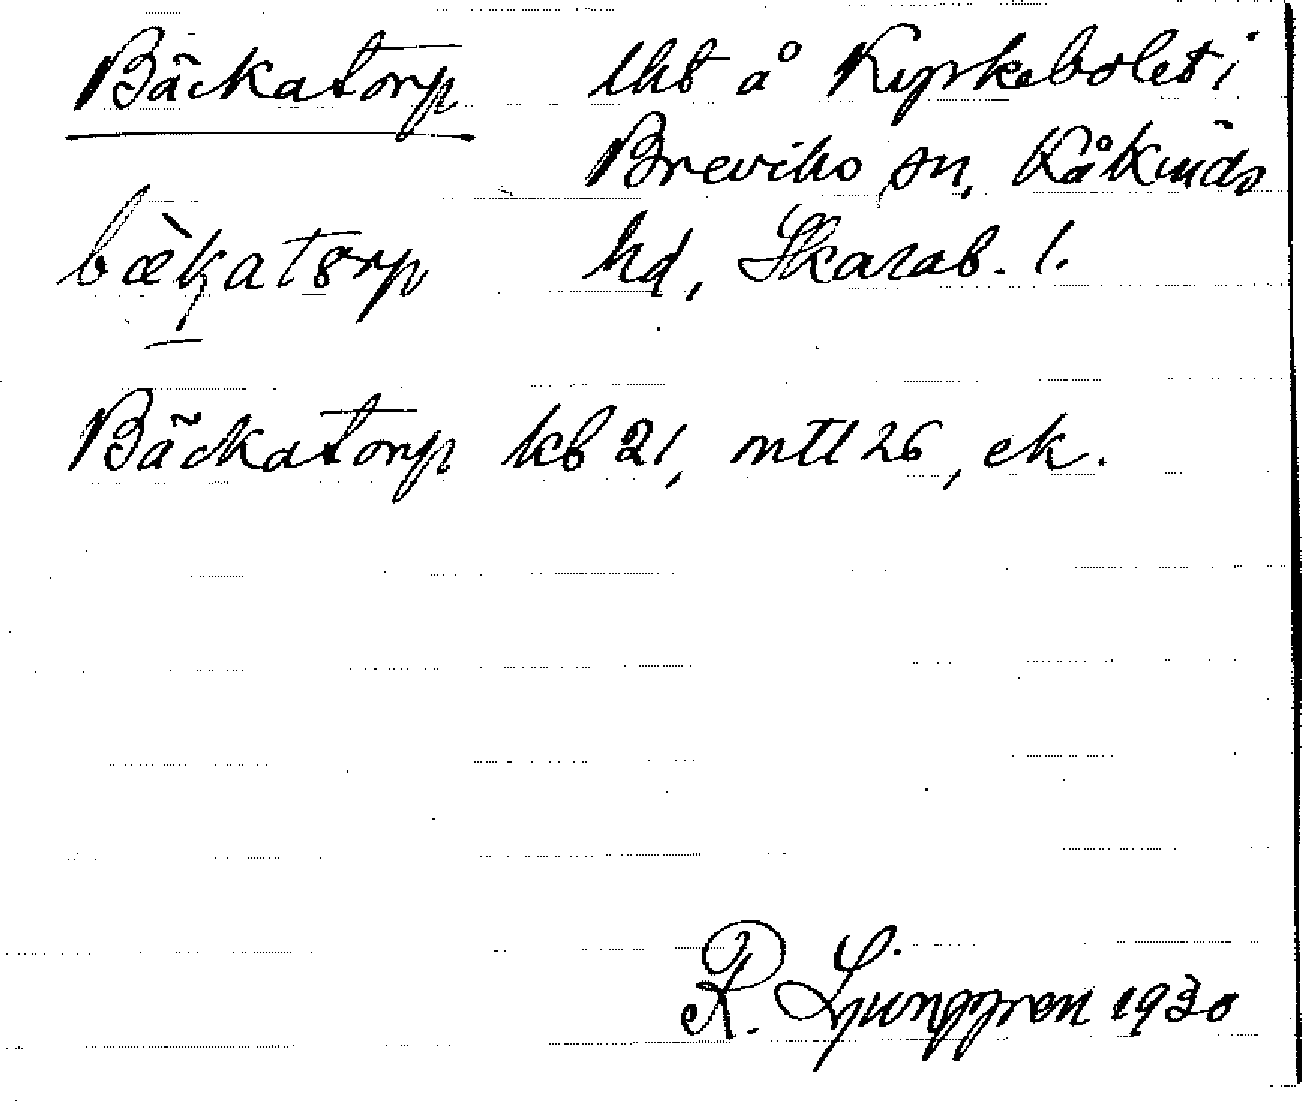 Bäckatorp lht å Kyrkebolet i
Breviks sn, Kåkinds
bækatorp hd, Skarab. l.
Bäckatorp kb 21, mtl 26, ek.
R. Ljunggren 1930